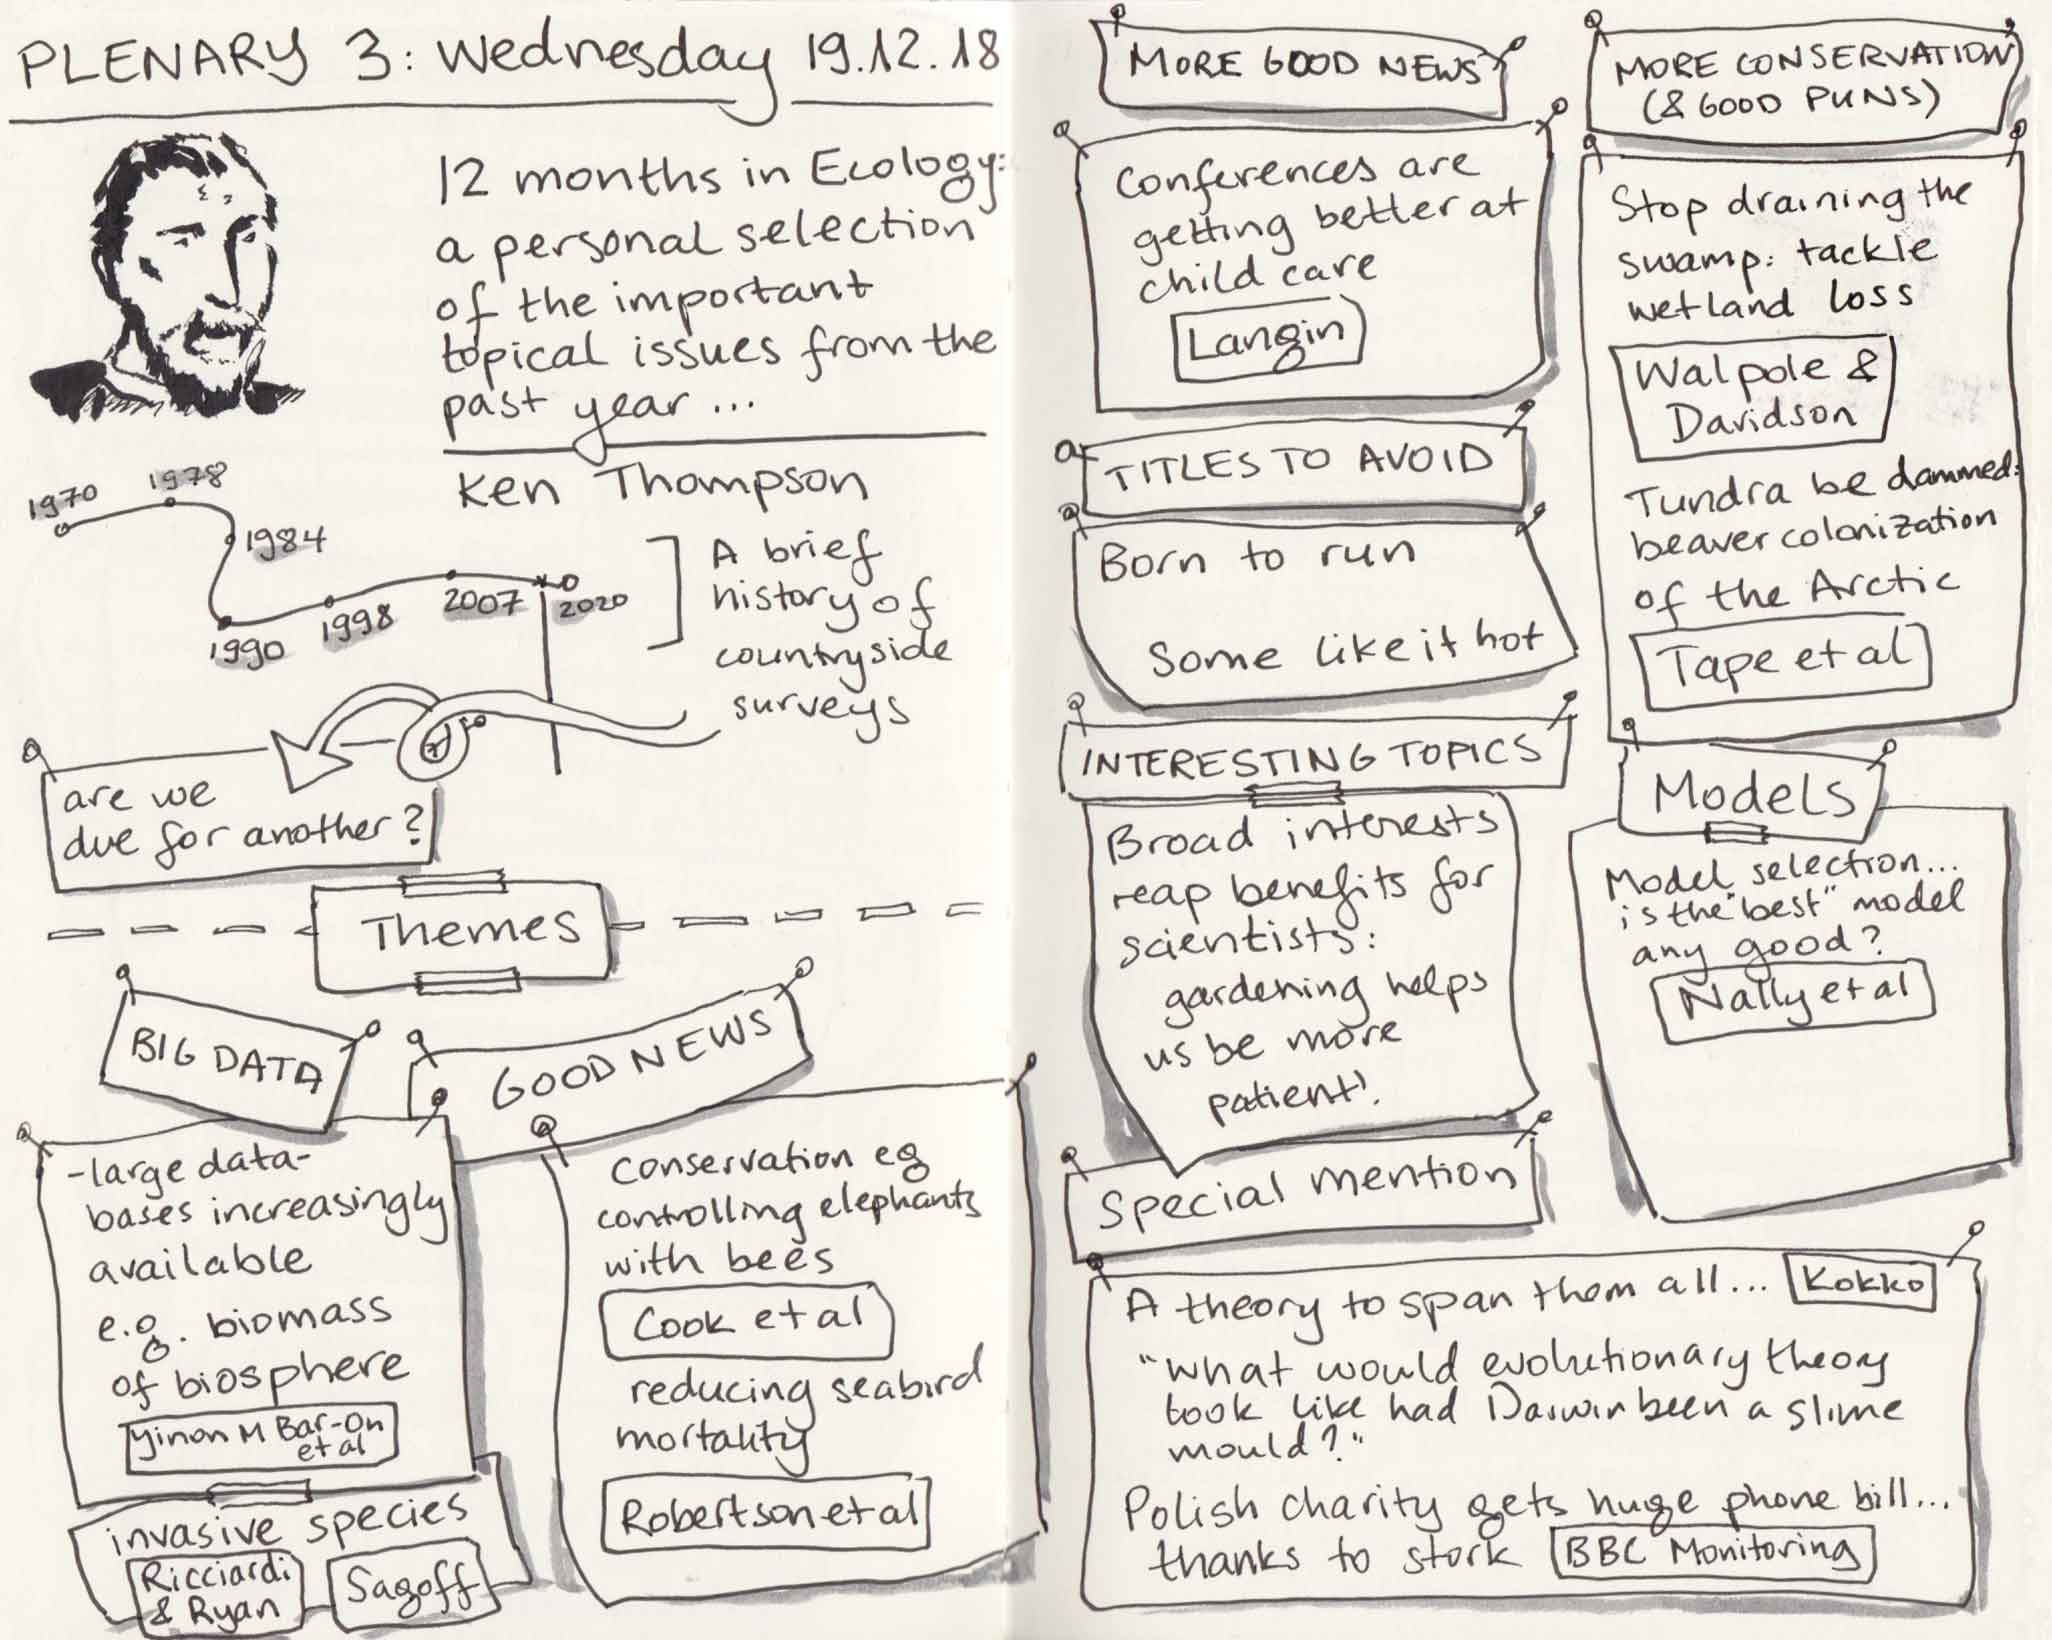 PLENARY 3: Wednesday 19.12.18
12 months in Ecology:
a personal selection
of the important
topical issues from the
past year...
Ken Thompson
1970
1978
1984
1990
1998
2007
2020
A brief
history of
countryside
surveys
are we
due for another?
Themes
BIG DATA
-large data-
bases increasingly
available
e.g. biomass
of biosphere
Yinon M Bar-On
et al
invasive species
Ricciardi
& Ryan
Sagoff
GOOD NEWS
Conservation eg
controlling elephants
with bees
Cook et al
reducing seabird
mortality
Robertson et al
MORE GOOD NEWS
Conferences are
getting better at
child care
Langin
TITLES TO AVOID
Born to run
Some like it hot
INTERESTING TOPICS
Broad interests
reap benefits for
scientists:
gardening helps
us be more
patient!
MORE CONSERVATION
(& GOOD PUNS)
Stop draining the
swamp: tackle
wetland loss
Walpole &
Davidson
Tundra be dammed:
beaver colonization
of the Arctic
Tape et al
Models
Model selection...
is the "best" model
any good?
Nally et al
Special mention
A theory to span them all... Kokko
"What would evolutionary theory
look like had Darwin been a slime
mould?"
Polish charity gets huge phone bill...
thanks to stork BBC Monitoring